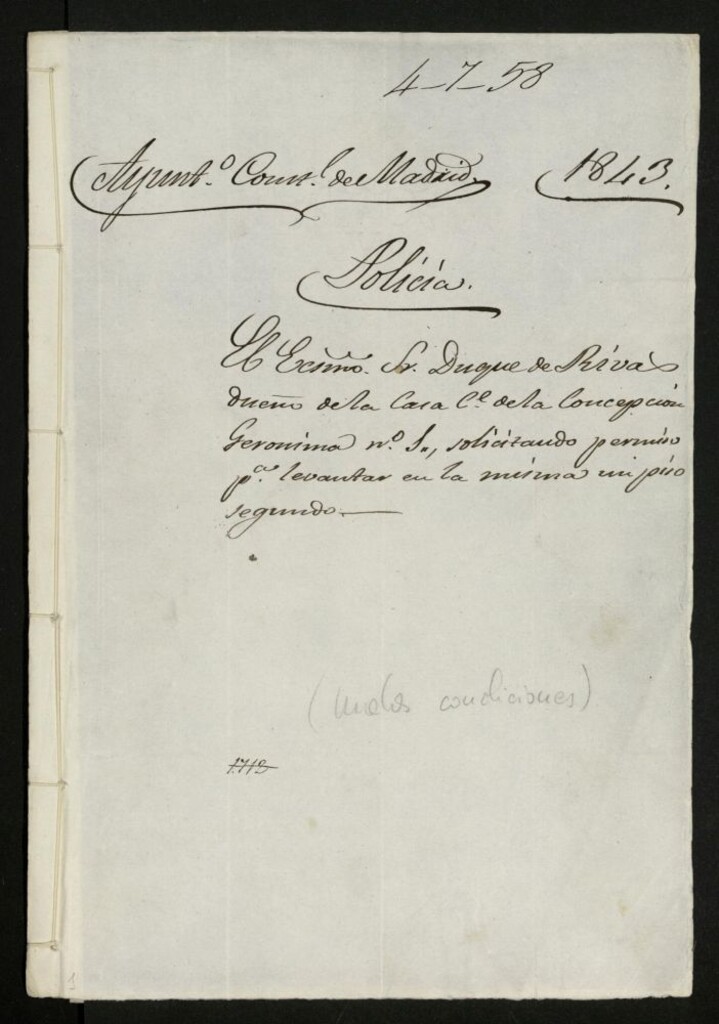 4-7-58
Ayunt.º Const.l de Madrid. 1843.
Policía.
El Ecsmo. Sr. Duque de Rivas
dueño de la Casa C.e de la Concepcion
Geronima n.º 1., solicitando permiso
p.a levantar en la misma un piso
segundo.
(malas condiciones)
1712
1